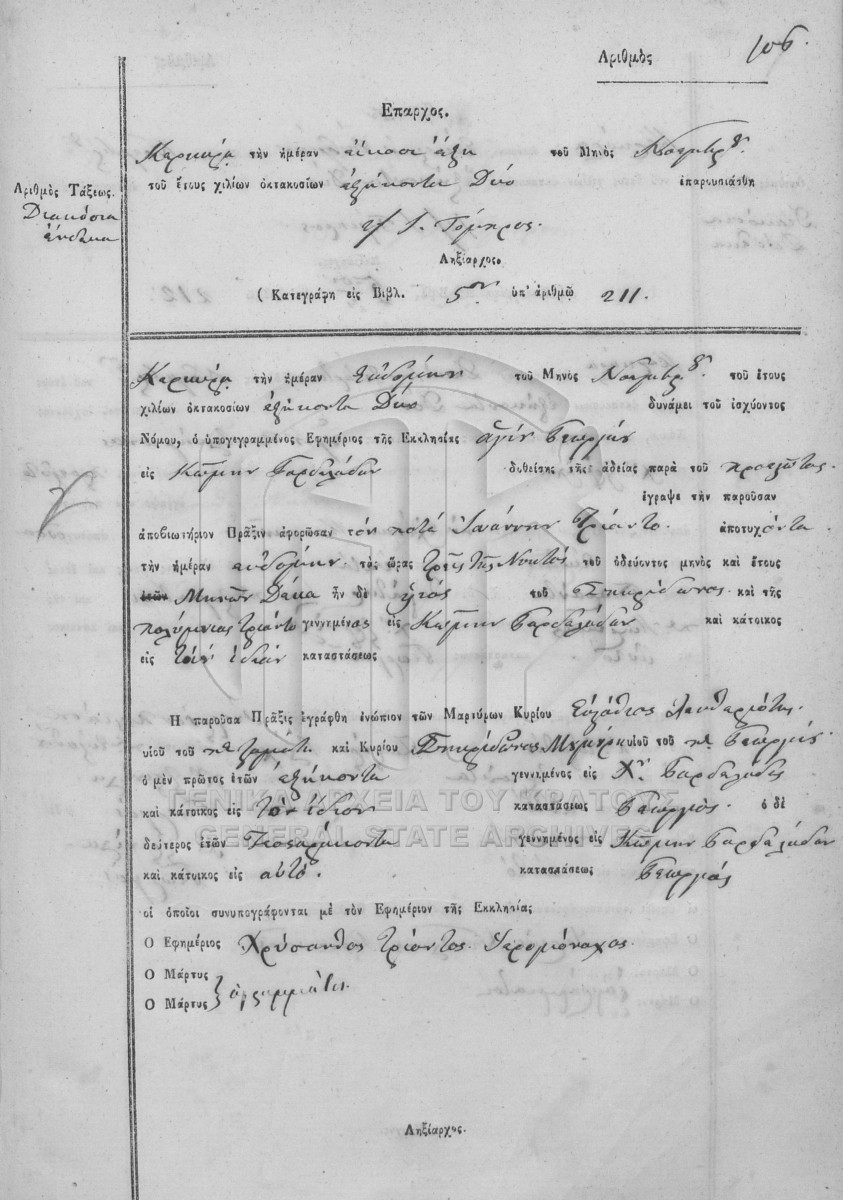 Αριθμὸς 106.
Επαρχος.
Κερκύρᾳ τὴν ἡμέραν εἴκοσι ἕξη τοῦ Μηνὸς Νοεμβρ.
Ἀριθμὸς Τάξεως. τοῦ ἔτους χιλίων ὀκτακοσίων ἑξήκοντα Δύο ἐπαρουσιάσθη
Διακόσια
ἕνδεκα
Ληξίαρχος.
( Κατεγράφη εἰς Βιβλ. 5ον ὑπ' ἀριθμῷ 211.
Κερκύρᾳ τὴν ἡμέραν τοῦ Μηνὸς Νοεμβρ. τοῦ ἔτους
χιλίων ὀκτακοσίων ἑξήκοντα Δύο δυνάμει τοῦ ἰσχύοντος
Νόμου, ὁ ὑπογεγραμμένος Ἐφημέριος τῆς Ἐκκλησίας ἁγίου Γεωργίου
εἰς Κώμην Γαρδελάδων δοθείσης τῆς ἀδείας παρὰ τοῦ προεστῶτος.
ἔγραψε τὴν παροῦσαν
ἀποβιωτήριον Πρᾶξιν ἀφορῶσαν τὸν ποτὲ Ἰωάννην Τριάντο. ἀποτυχόντα
τὴν ἡμέραν τὰς ὥρας τρεῖς τῆς Νυκτὸς τοῦ ὁδεύοντος μηνὸς καὶ ἔτους
ἐτῶν Μηνῶν Δέκα ἦν δὲ υἱὸς τοῦ Σπυρίδωνος. καὶ τῆς
Πολύμνιας Τριάντο γεννημένος εἰς Κώμην Γαρδελάδων καὶ κάτοικος
εἰς τὴν ἰδίαν καταστάσεως
Ἡ παροῦσα Πρᾶξις ἐγράφθη ἐνώπιον τῶν Μαρτύρων Κυρίου
υἱοῦ τοῦ καὶ Κυρίου Σπυρίδωνος υἱοῦ τοῦ Γεωργίου
ὁ μὲν πρῶτος ἐτῶν ἑξήκοντα γεννημένος εἰς Χ. Γαρδελάδες
καὶ κάτοικος εἰς τὸ ἴδιον καταστάσεως Γεωργός. ὁ δὲ
δεύτερος ἐτῶν τεσσαράκοντα γεννημένος εἰς Κώμην Γαρδελάδων
καὶ κάτοικος εἰς αὐτό. καταστάσεως Γεωργός
οἱ ὁποῖοι συνυπογράφονται μὲ τὸν Ἐφημέριον τῆς Ἐκκλησίας
Ὁ Ἐφημέριος Χρύσανθος Τριάντος Ἱερομόναχος.
Ὁ Μάρτυς
Ὁ Μάρτυς } ἀγράμματοι.
Ληξίαρχος.
ΓΕΝΙΚΑ ΑΡΧΕΙΑ ΤΟΥ ΚΡΑΤΟΥΣ
GENERAL STATE ARCHIVES